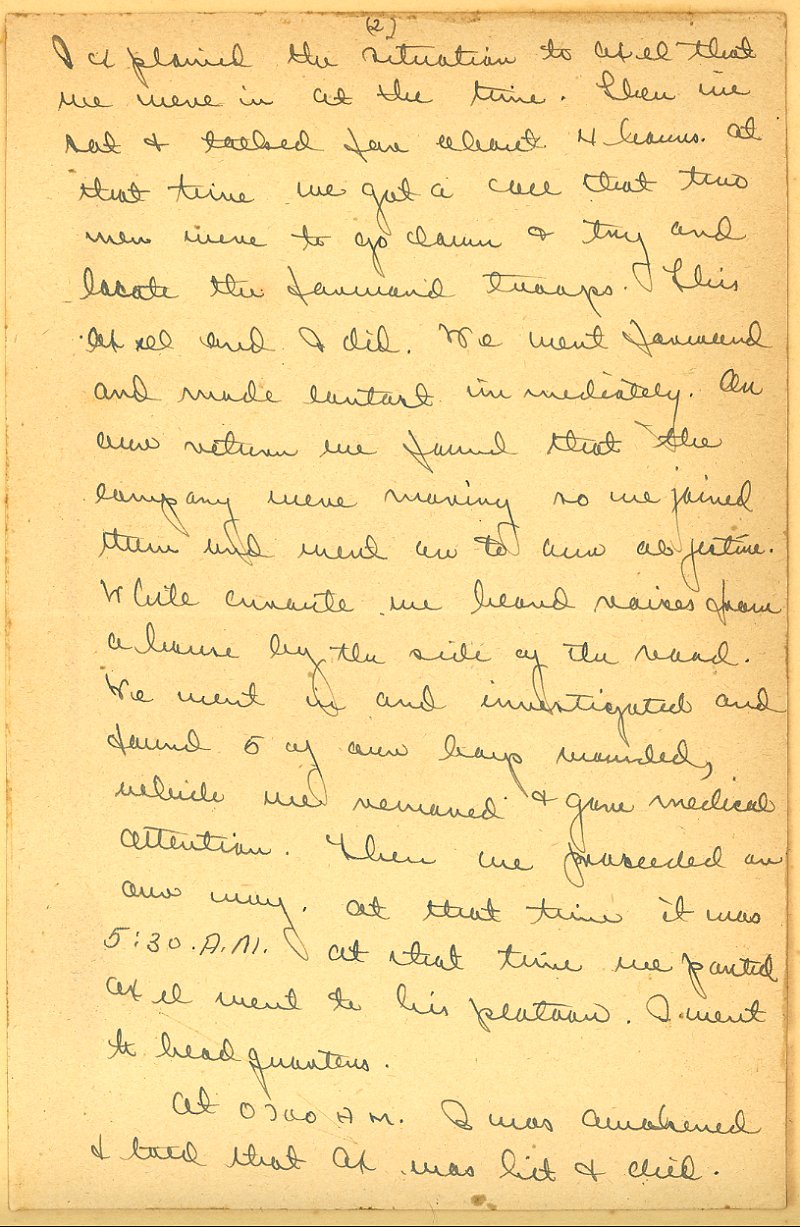 (2)
I explained the situation to Axel that
we were in at the time. Then we
sat & talked for about 4 hours. At
that time we got a call that two
men were to go down & try and
locate the forward troops. This
Axel and I did. We went forward
and made contact immediately. On
our return we found that the
company were moving so we joined
them and went on to our objective.
While enroute we heard voices from
a house by the side of the road.
We went in and investigated and
found 5 of our boys wounded,
which we removed & gave medical
attention. Then we proceeded on
our way. At that time it was
5:30 A.M. At that time we parted
Axel went to his platoon. I went
to headquarters.
At 0700 A.M. I was awakened
& told that Ax was hit & died.